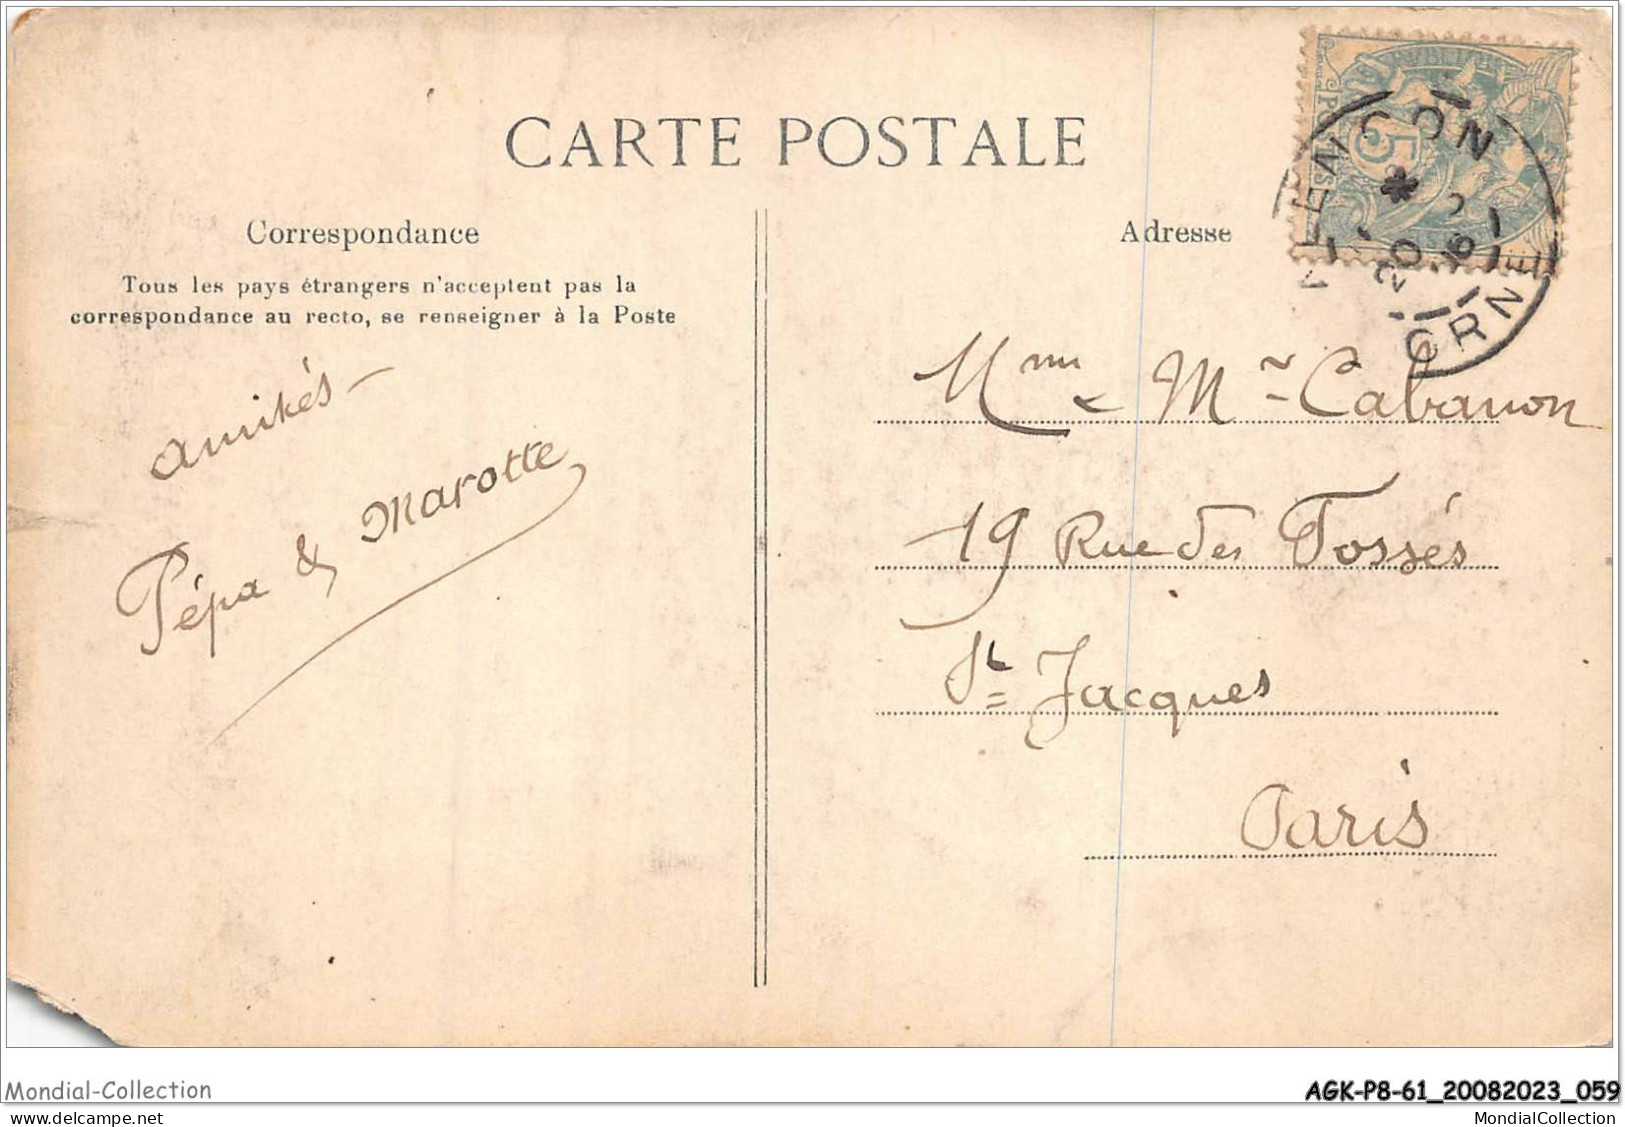 CARTE POSTALE
Correspondance
Tous les pays étrangers n'acceptent pas la
correspondance au recto, se renseigner à la Poste
Adresse
RÉPUBLIQUE
POSTES
5
ALENCON
ORNE
amitiés —
Pépa & Marotte
Mme Mr Cabanon
19 Rue des Fossés
St Jacques
Paris
Mondial-Collection
AGK-P8-61_20082023_059
www.delcampe.net
MondialCollection